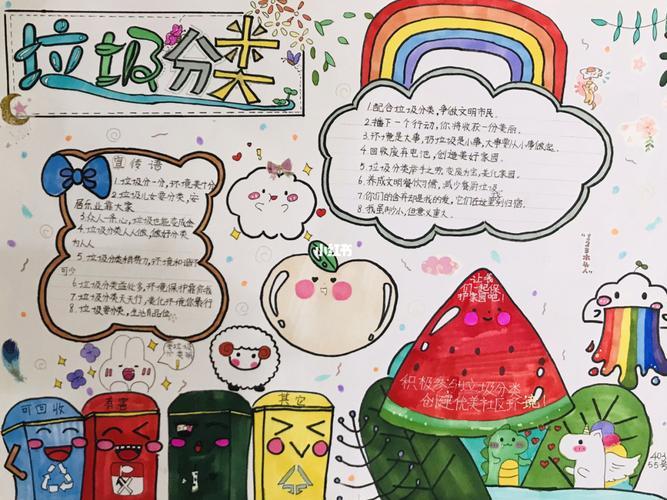 垃圾分类
宣传语
1.垃圾分一分,环境美十分
2.垃圾儿女要分类,安
居乐业靠大家
3.众人一条心,垃圾也能变成金
4.垃圾分类人人做,做好分类
为人人
5.垃圾分类
可少
6.垃圾分类益处多,环境保护靠你我
7.垃圾分类天天行,美化环境你最行
8.垃圾要分类,生活有品位
1.配合垃圾分类,争做文明市民。
2.播下一个行动,你将收获一份美丽。
3.环境是大事,扔垃圾是小事,大事要从小事做起。
4.回收废弃电池,创造美好家园。
5.垃圾分类举手之劳,变废为宝,美化家园。
6.养成文明餐饮习惯,减少餐厨垃圾。
7.你们的合并却是我的爱,它们在这里列归宿。
8.我虽小,但意义重大。
小红书
让我
们一起保
护家园吧!
积极参与垃圾分类
创建优美社区环境!
可回收
有害
其它